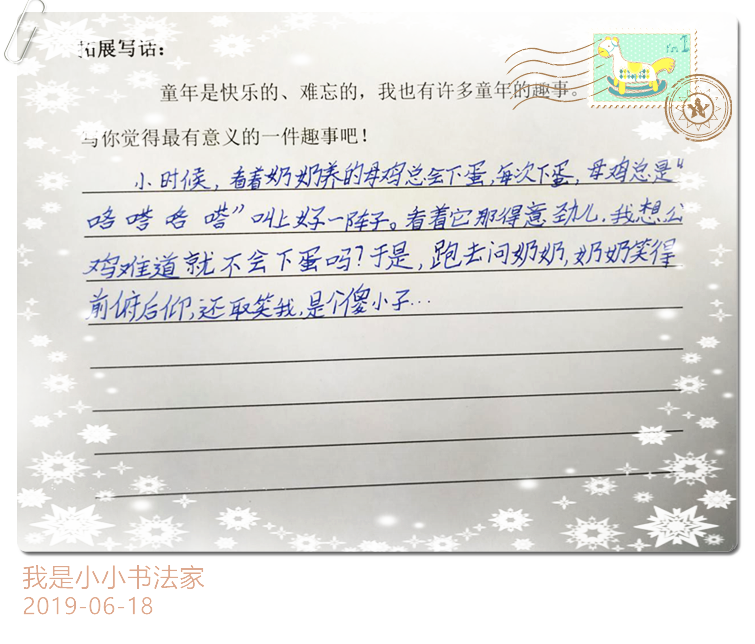 拓展写话：
童年是快乐的、难忘的，我也有许多童年的趣事。
写你觉得最有意义的一件趣事吧！
小时候，看着奶奶养的母鸡总会下蛋，每次下蛋，母鸡总是“
咯嗒咯嗒”叫上好一阵子。看着它那得意劲儿，我想公
鸡难道就不会下蛋吗？于是，跑去问奶奶，奶奶笑得
前俯后仰，还取笑我，是个傻小子…
我是小小书法家
2019-06-18